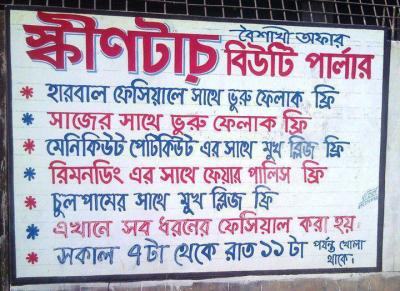 বৈশাখী অফার
স্কীণটাচ্ বিউটি পার্লার
* হারবাল ফেসিয়ালে সাথে ভুরু ফেলাক ফ্রি
* সাজের সাথে ভুরু ফেলাক ফ্রি
* মেনিকিউট পেটিকিউট এর সাথে মুখ ব্লিজ ফ্রি
* রিমনডিং এর সাথে ফেয়ার পালিস ফ্রি
* চুল পামের সাথে মুখ ব্লিজ ফ্রি
* এখানে সব ধরনের ফেসিয়াল করা হয়
* সকাল ৭টা থেকে রাত ১১টা পর্যন্ত খোলা
থাকে।